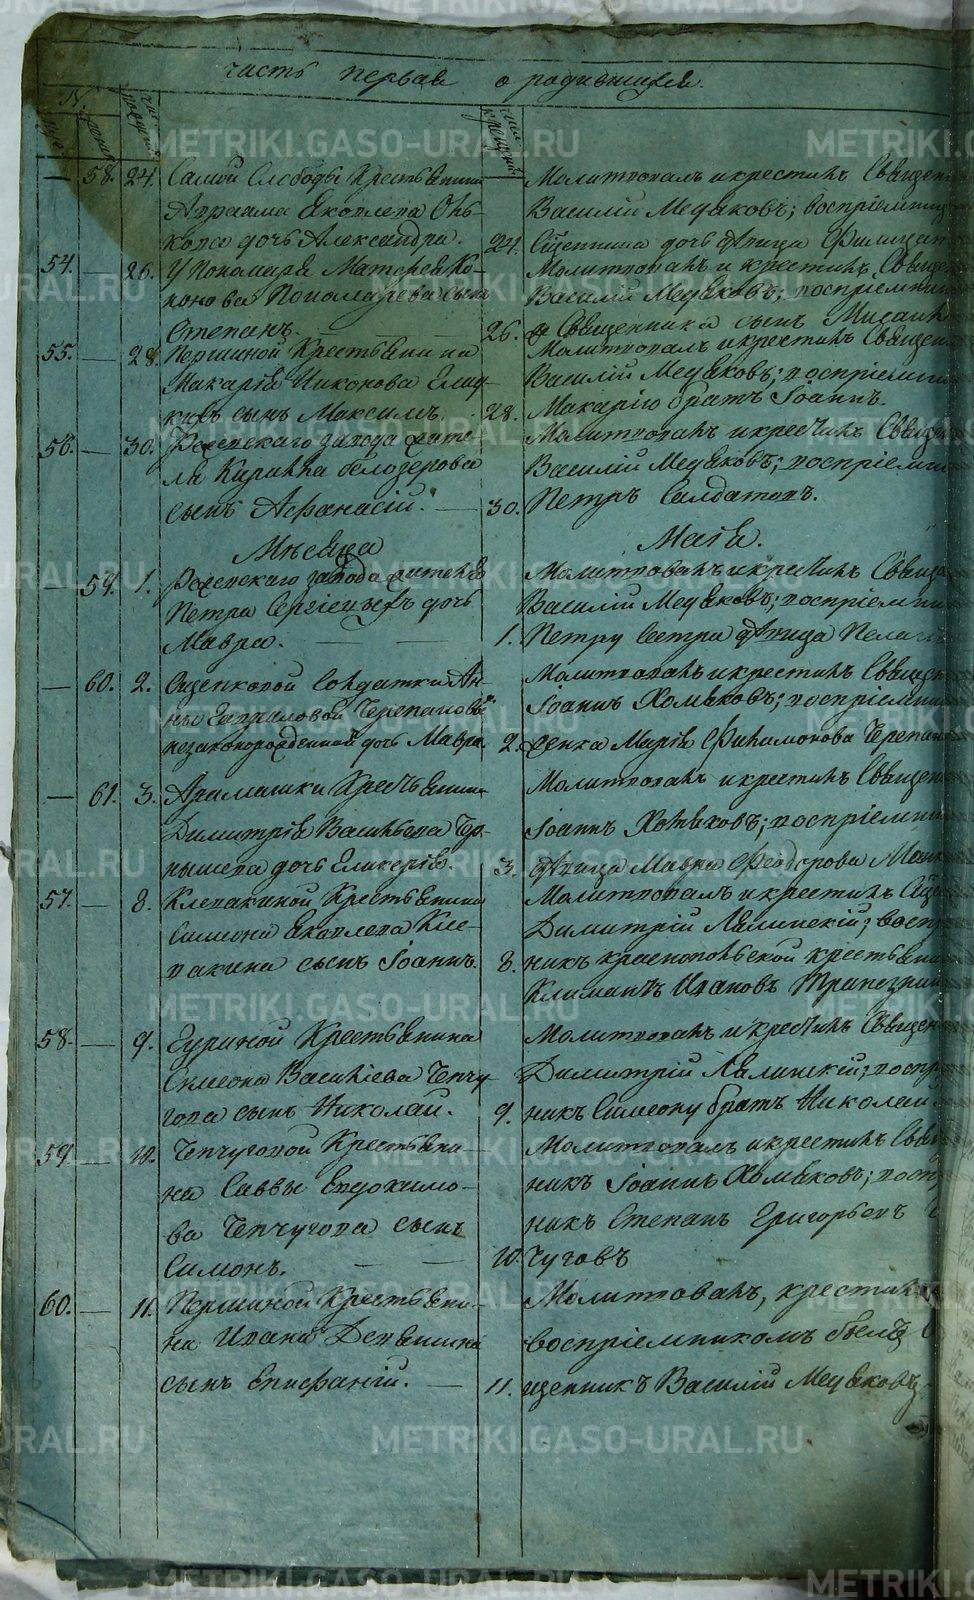 часть первая о родившихся.
58. 24. Самой Слободы Крестьянина
Авраама Яковлева
дочь Александра.
Молитвовалъ и крестилъ Священ
Василій Медяковъ; воспріемниц
24. дочь дѣвица
54. — 26. У Пономаря Матфея Ко-
нонова Пономарева сынъ
Степанъ.
Молитвовалъ и крестилъ Священ
Василій Медяковъ; воспріемник
26. Священника сынъ Михаилъ
55. — 28. Першиной Крестьянина
Макарія Никонова Глад-
кихъ сынъ Максимъ.
Молитвовалъ и крестилъ Священ
Василій Медяковъ; воспріемни
28. Макарію братъ Іоаннъ.
56. — 30. Режевскаго завода жите-
ля Кирилла Белозерова
сынъ Афанасій. —
Молитвовалъ и крестилъ Свящ
Василій Медяковъ; воспріем
30. Петръ Салдатовъ.
Мѣсяца Маія.
— 59. 1. Режевскаго завода жителя
Петра Сергіевыхъ дочь
Мавра. — —
Молитвовалъ и крестилъ Свяще
Василій Медяковъ; воспріемни
1. Петру Сестра дѣвица Пелаг
— 60. 2. Ощепковой Солдатки Ан-
ны Гавриловой Черепановой
незаконорожденная дочь Мавра.
Молитвовалъ и крестилъ Священ
Іоаннъ Хомяковъ; воспріемни
2. женка Марія Филимонова Черепан
— 61. 3. Арамашки Крестьянина
Димитрія Васильева Чер-
нышева дочь Гликерія.
Молитвовалъ и крестилъ Священ
Іоаннъ Хомяковъ; воспріемни
3. дѣвица Мавра Феодорова Ман
57. — 8. Клевакиной Крестьянина
Симеона Яковлева Кле-
вакина сынъ Іоаннъ.
Молитвовалъ и крестилъ Свще
Димитрій Лялинскій; воспр
8. никъ краснопольской крестьянин
Климантъ Ивановъ Трапезник
58. — 9. Гуриной Крестьянина
Симеона Василіева Чепчу-
гова сынъ Николай.
Молитвовалъ и крестилъ Священ
Димитрій Лялинскій; воспр
9. никъ Симеону братъ Николай
59. — 10. Чепчуговой Крестьяни-
на Саввы Евдокимо-
ва Чепчугова сынъ
Симонъ. — —
Молитвовалъ и крестилъ Свящ
никъ Іоаннъ Хомяковъ; воспр
никъ Степанъ Григорьевъ Ч
10. чуговъ
60. — 11. Першиной Крестьяни-
на Ивана Девяшина
сынъ Епифаній. —
Молитвовалъ, крестилъ и
воспріемникомъ былъ С
11. щенникъ Василій Медяковъ
METRIKI.GASO-URAL.RU